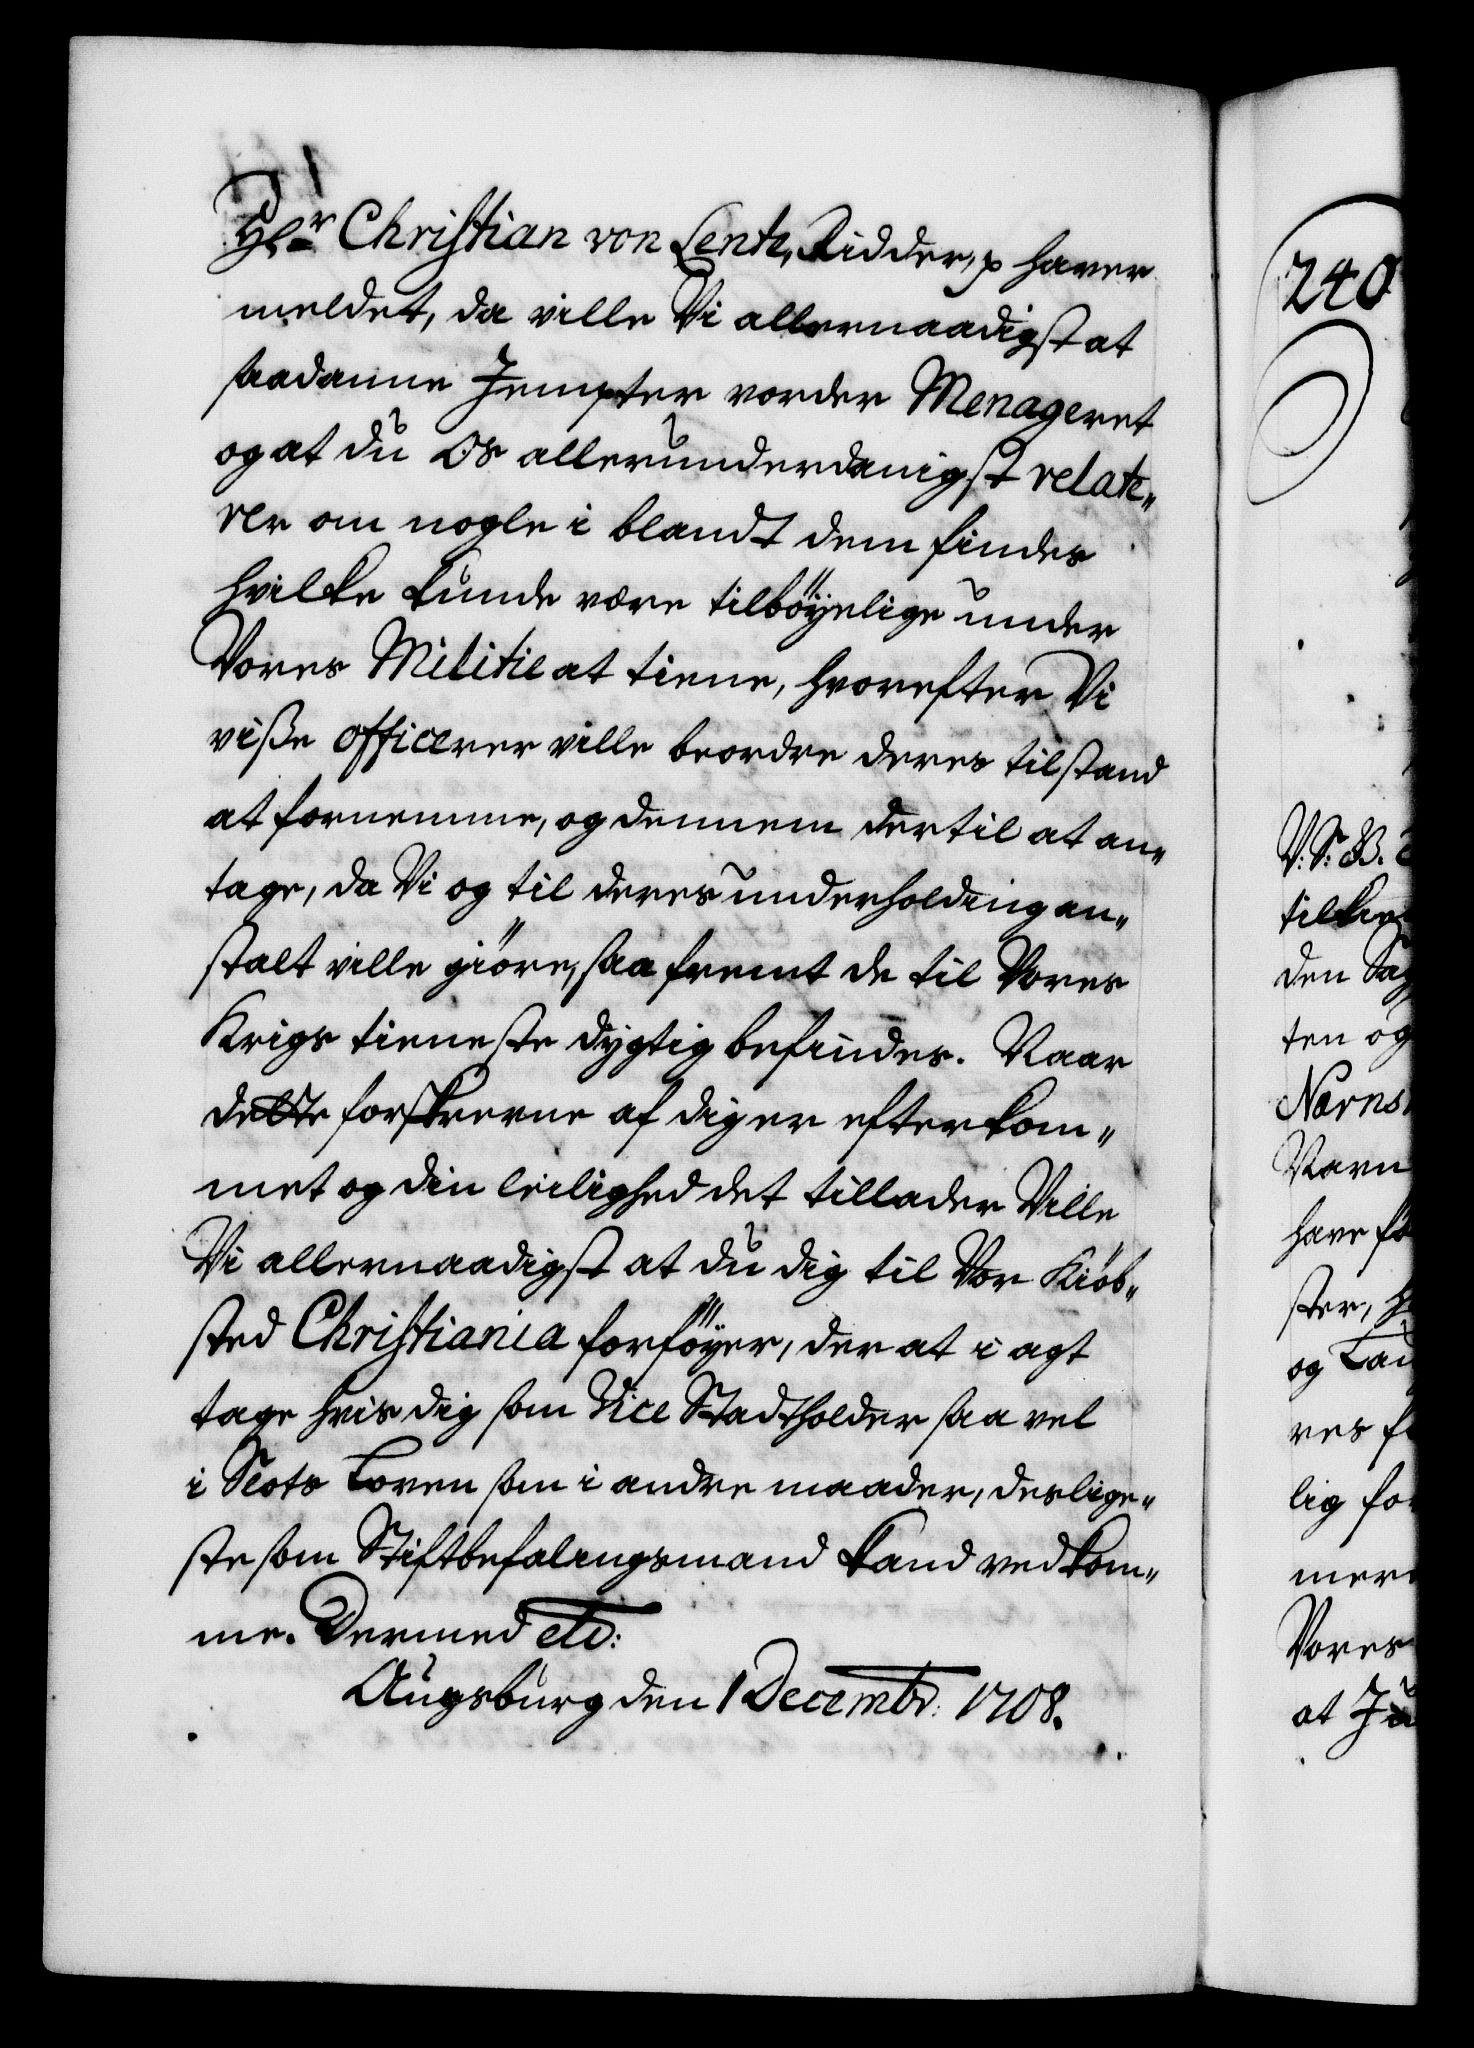 Hr Christian von Lente, Ridder, p haver
meldet, da ville Vi allernaadigst at
saadanne Jempter vorder Menageret
og at du Os allerunderdanigst relate„
rer om nogle i blandt dem findes
hvilke kunde være tilböyelige under
Vores Militie at tiene, hvorefter Vi
viße officerer ville beordre deres tilstand
at fornemme, og dennem dertil at an„
tage, da Vi og til deres underholding an„
stalt ville giöre, saa fremt de til Vores
Krigs tieneste dygtig befindes. Naar
dette forskrevne af dig er efterkom„
met og din leilighed det tillader Ville
Vi allernaadigst at du dig til Vor Kiöb„
sted Christiania forföyer, der at i agt
tage hvis dig som Vice Stadtholder saa vel
i Slots Loven som i andre maader, deslige„
ste som Stiftbefalingsmand kand vedkom„
me. Dermed etc:
Augsburg den 1 Decembr: 1708.
240
V: S: B.
den Sag
ten og
Nærns
Navn
have
ster,
og
ves
lig for
mere
Vores
at